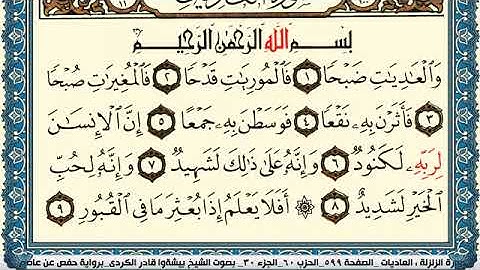 سورة العاديات
بِسْمِ اللَّهِ الرَّحْمَٰنِ الرَّحِيمِ
وَالْعَادِيَاتِ ضَبْحًا ١ فَالْمُورِيَاتِ قَدْحًا ٢ فَالْمُغِيرَاتِ صُبْحًا
٣ فَأَثَرْنَ بِهِ نَقْعًا ٤ فَوَسَطْنَ بِهِ جَمْعًا ٥ إِنَّ الْإِنسَانَ
لِرَبِّهِ لَكَنُودٌ ٦ وَإِنَّهُ عَلَىٰ ذَٰلِكَ لَشَهِيدٌ ٧ وَإِنَّهُ لِحُبِّ
الْخَيْرِ لَشَدِيدٌ ٨ ۞ أَفَلَا يَعْلَمُ إِذَا بُعْثِرَ مَا فِي الْقُبُورِ ٩
ة الزلزلة ، العاديات _ الصفحة ٥٩٩_ الحزب ٦٠_ الجزء ٣٠_ بصوت الشيخ بيشةوا قادر الكردى_برواية حفص عن عاص